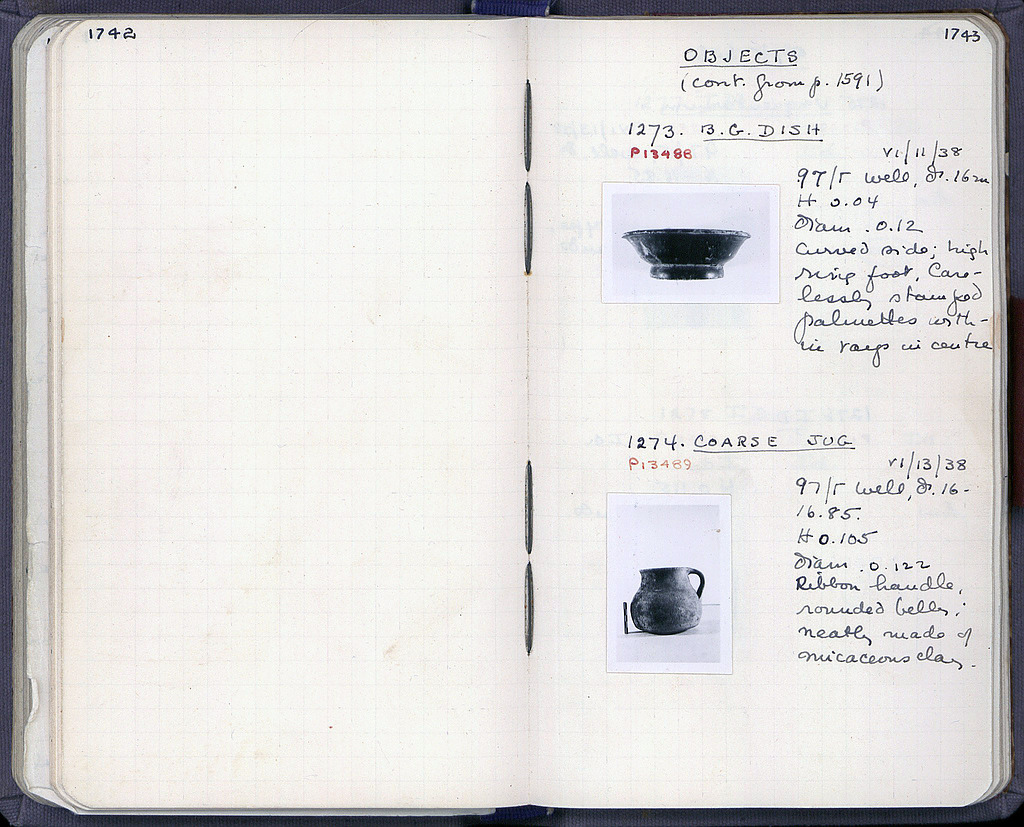 1742
1743
OBJECTS
(cont. from p. 1591)
1273. B.G. DISH
P13488
VI/11/38
97/Γ well, d. 16m
H 0.04
diam. 0.12
Curved side; high
ring foot. Care-
lessly stamped
palmettes with-
in rays in centre
1274. COARSE JUG
P13489
VI/13/38
97/Γ well, d. 16-
16.85.
H 0.105
diam. 0.122
Ribbon handle,
rounded belly;
neatly made of
micaceous clay.